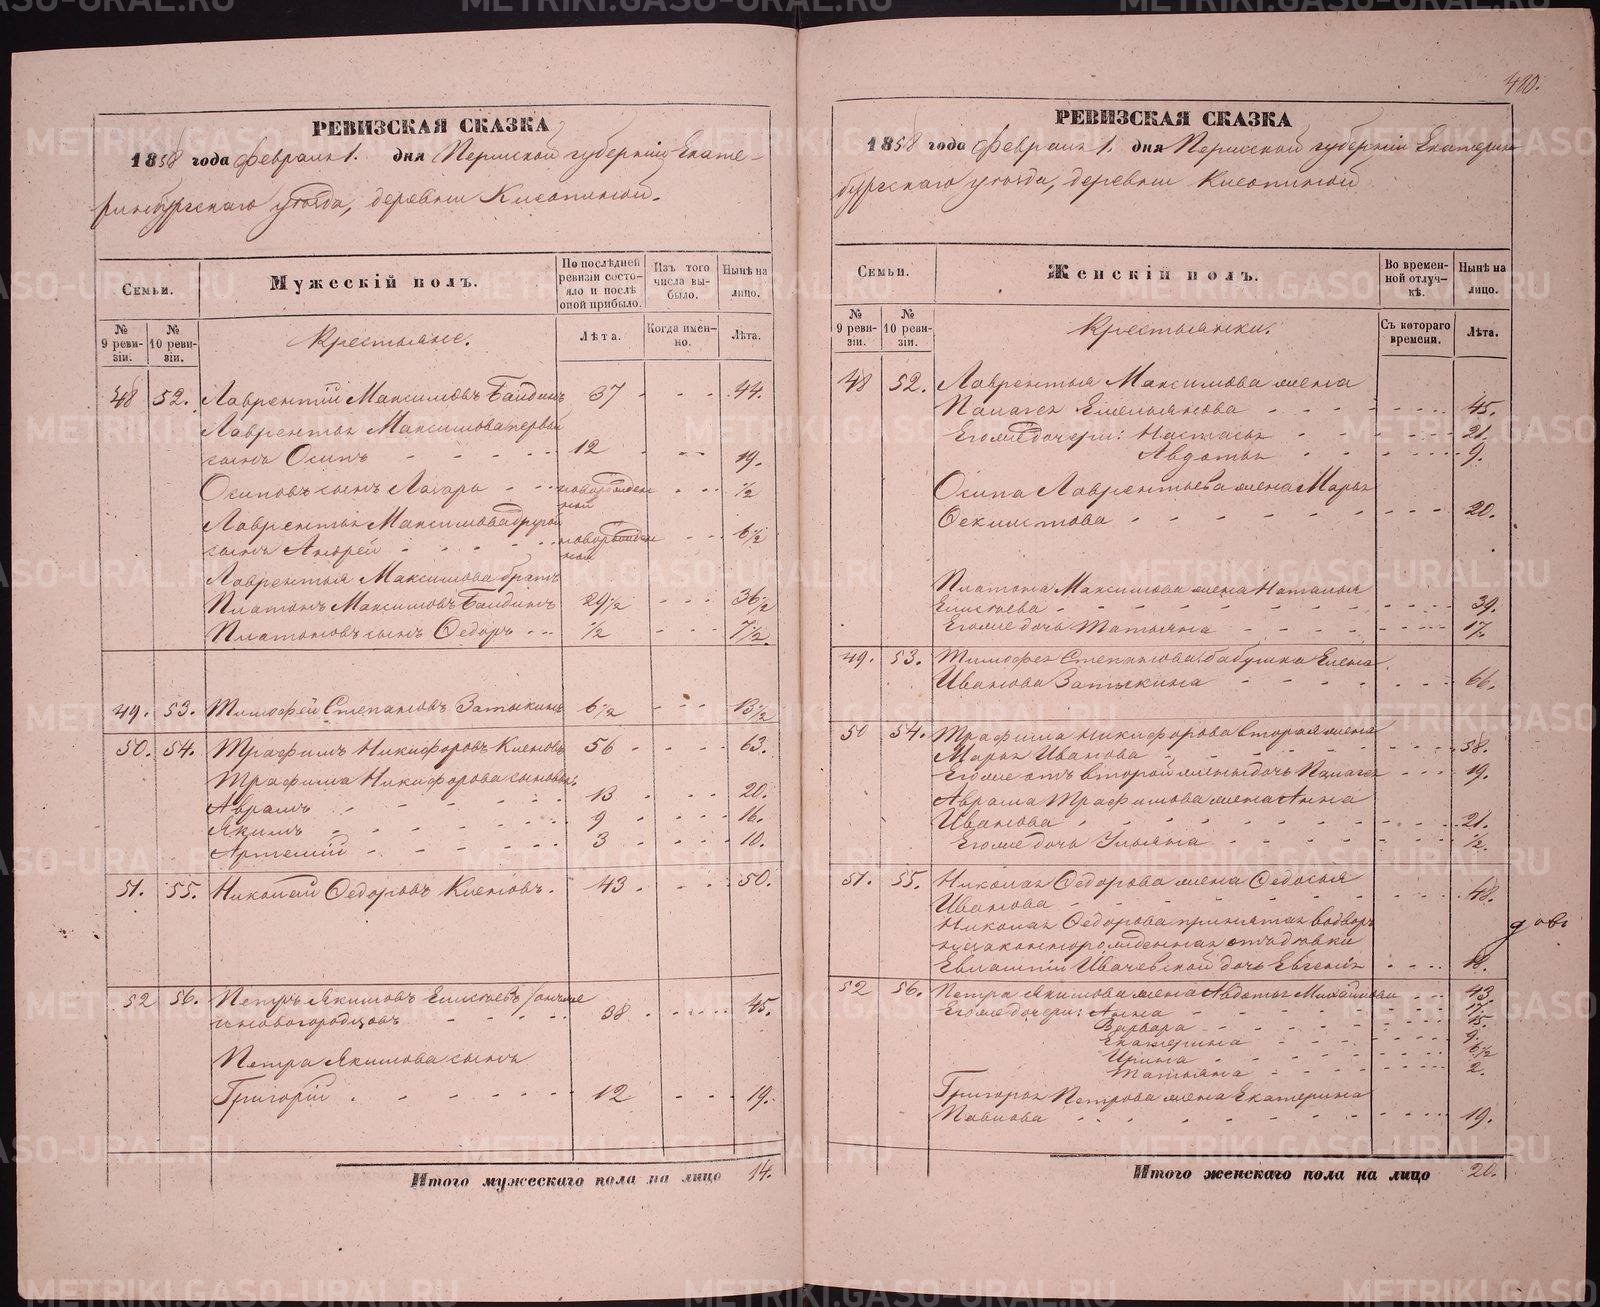 РЕВИЗСКАЯ СКАЗКА
1858 года Февраля 1. дня Пермской губерніи Екате-
ринбургскаго уѣзда, деревни
Семьи.
Мужескій полъ.
По послѣдней ревизіи состояло и послѣ оной прибыло.
Изъ того числа выбыло.
Нынѣ на лицо.
№ 9 ревизіи.
№ 10 ревизіи.
Крестьяне.
Лѣта.
Когда именно.
Лѣта.
48 52. Лаврентій Максимовъ 37 44.
Лаврентья Максимова первой
сынъ Осипъ 12 19.
Осиповъ сынъ Лазарь новорожденной ½
Лаврентья Максимова другой
сынъ Андрей новорожденной 6½
Лаврентья Максимова братъ
Платонъ Максимовъ 29½ 36½
Платоновъ сынъ Федоръ ½ 7½
49. 53. Тимофей Степановъ Затыкинъ 6½ 13½
50. 54. Трафимъ Никифоровъ Кленовъ 56 63.
Трафима Никифорова сыновья:
Аврамъ 13 20.
Якимъ 9 16.
Артемій 3 10.
51. 55. Николай Федоровъ Кленовъ. 43 50.
52 56. Петръ Якимовъ Елисѣевъ
38 45.
Петра Якимова сынъ
Григорій 12 19.
Итого мужескаго пола на лицо 14.
480.
РЕВИЗСКАЯ СКАЗКА
1858 года Февраля 1. дня Пермской губерніи Екатерин
бургскаго уѣзда, деревни
Семьи.
Женскій полъ.
Во временной отлучкѣ.
Нынѣ на лицо.
№ 9 ревизіи.
№ 10 ревизіи.
Крестьянки.
Съ котораго времени.
Лѣта.
48 52. Лаврентья Максимова жена
Палагея Емельянова 45.
Его же дочери: Настасья 21.
Авдотья 9.
Осипа Лаврентьева жена Марья
20.
Платона Максимова жена Наталья
Елисѣева 39.
Его же дочь Татьяна 17.
49. 53. Тимофея Степанова бабушка Елена
Иванова Затыкина 66.
50 54. Трафима Никифорова вторая жена
Марья Иванова 58.
Его же отъ второй жены дочь Палагея 19.
Аврама Трафимова жена Анна
Иванова 21.
Его же дочь Ульяна ½.
51. 55. Николая Федорова жена Федосья
Иванова 48.
Николая Федорова принятая
незаконнорожденная отъ дѣвки
дочь Евгенія
52 56. Петра Якимова жена Авдотья Михайлова 43.
Его же дочери: Анна 17.
Варвара 15.
Екатерина 9.
Ирина 6½
Татьяна 2.
Григорья Петрова жена Екатерина
Павлова 19.
Итого женскаго пола на лицо 20.
METRIKI.GASO-URAL.RU